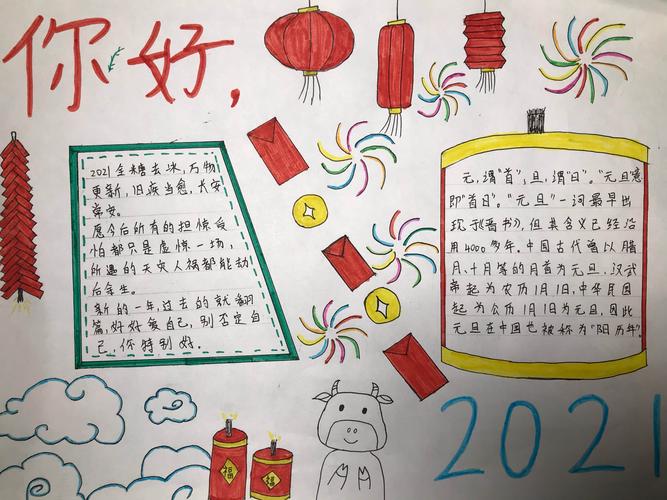 你好,
2021全糖去冰,万物
更新,旧疾当愈,长安
常安。
愿今后所有的担惊受
怕都只是虚惊一场,
所遇的天灾人祸都能劫
后余生。
新的一年,过去的就翻
篇,好好爱自己,别否定自
己,你特别好。
元,谓“首”,旦,谓“日”。“元旦意
即“首日”。“元旦”一词最早出
现于《晋书》,但其含义已经沿
用4000多年。中国古代曾以腊
月、十月等的月首为元旦。汉武
帝起为农历1月1日,中华民国
起为公历1月1日为元旦,因此
元旦在中国也被称为“阳历年”。
福
福
2021